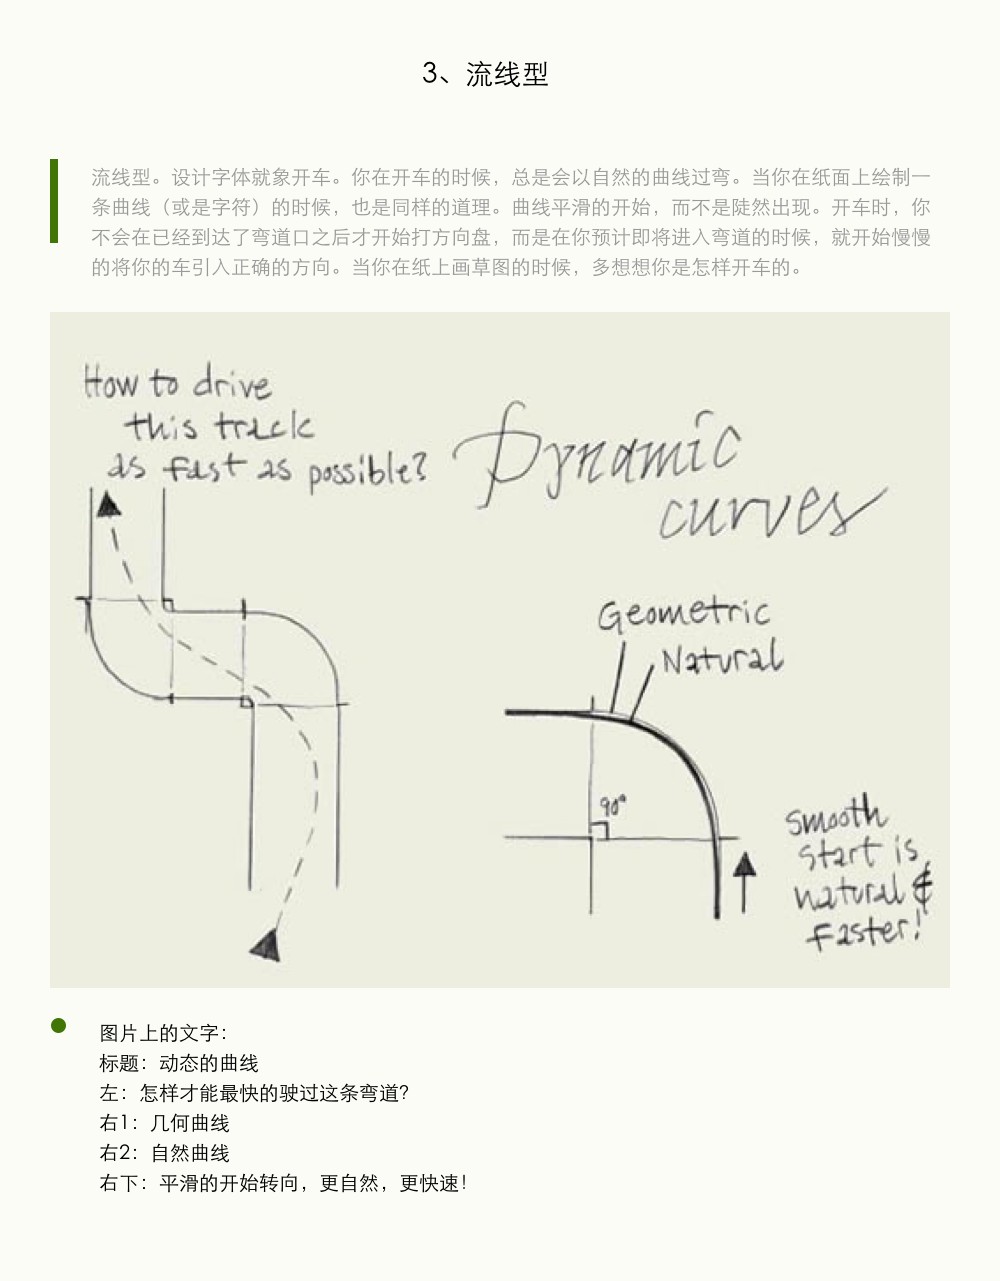 3、流线型
流线型。设计字体就象开车。你在开车的时候，总是会以自然的曲线过弯。当你在纸面上绘制一
条曲线（或是字符）的时候，也是同样的道理。曲线平滑的开始，而不是陡然出现。开车时，你
不会在已经到达了弯道口之后才开始打方向盘，而是在你预计即将进入弯道的时候，就开始慢慢
的将你的车引入正确的方向。当你在纸上画草图的时候，多想想你是怎样开车的。
How to drive
this track
as fast as possible?
Dynamic
curves
Geometric
Natural
90°
Smooth
start is
natural &
faster!
图片上的文字：
标题：动态的曲线
左：怎样才能最快的驶过这条弯道？
右1：几何曲线
右2：自然曲线
右下：平滑的开始转向，更自然，更快速！